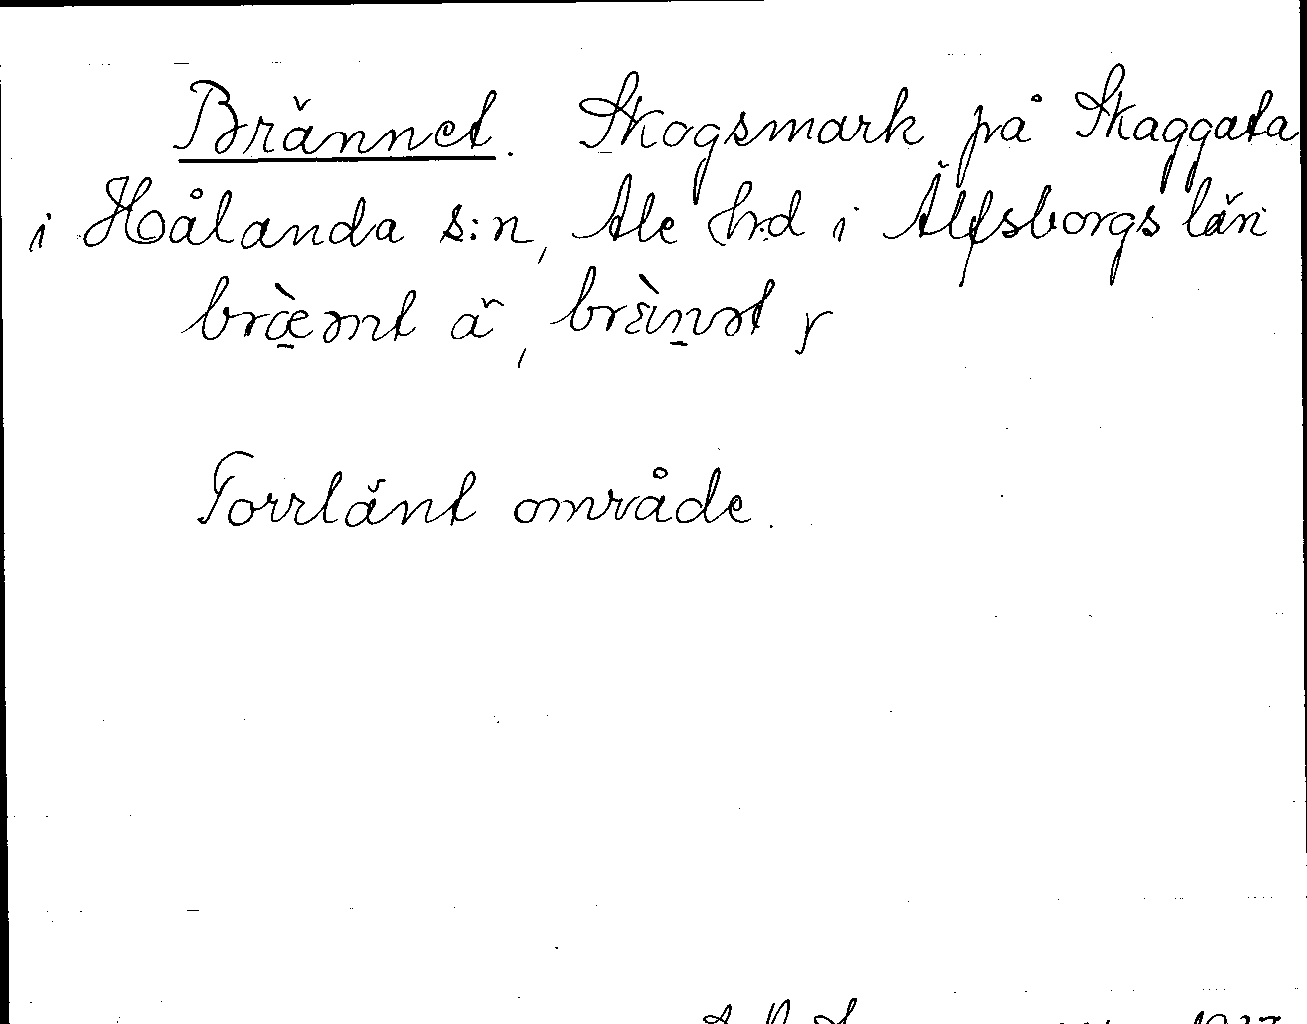 Brännet. Skogsmark på Skaggata
i Hålanda s:n, Ale hd i Älfsborgs län
bræ̀ənt ä, brànət y
Torrlänt område.